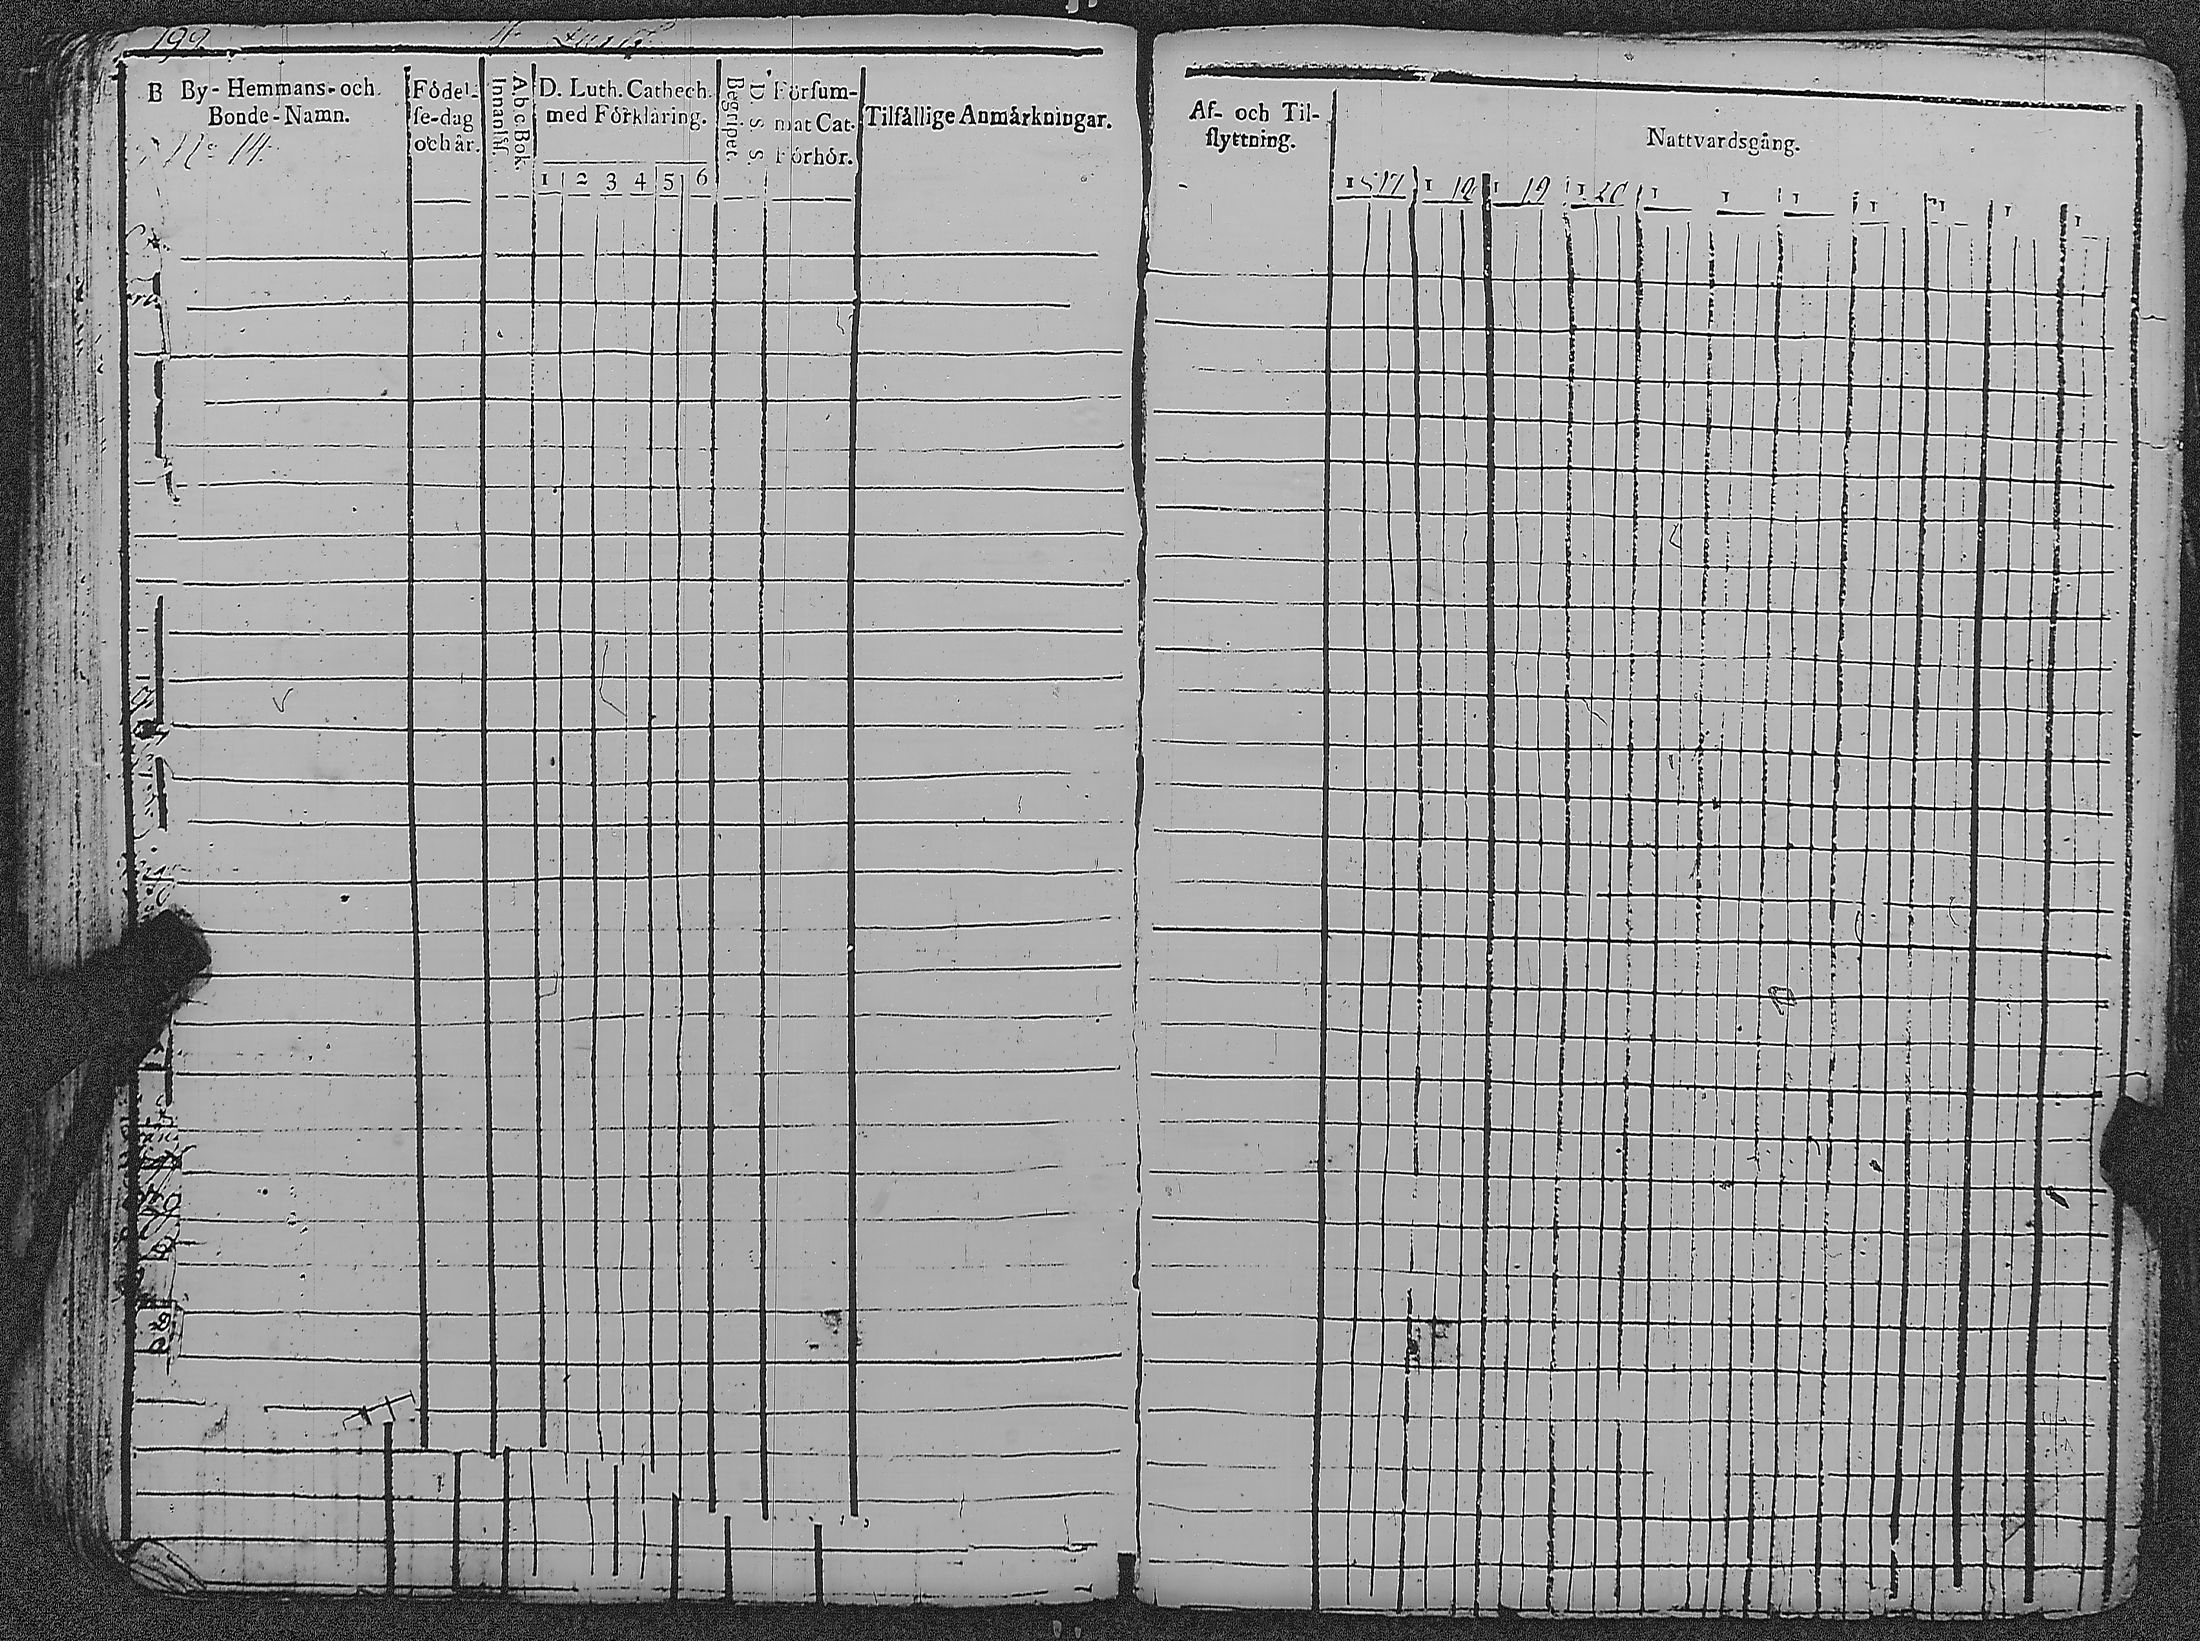 199
B By-Hemmans-och
Bonde-Namn.
No 14.
Födel-
se-dag
och år.
Abc Bok.
Innanläs.
D. Luth. Cathech.
med Förklaring.
1 2 3 4 5 6
D. S. S.
Begripet.
Försum-
mat Cat.
Förhör.
Tilfällige Anmärkningar.
Af- och Til-
flyttning.
Nattvardsgång.
1817 1 18 1 19 1 20 1 1 1 1 1 1 1